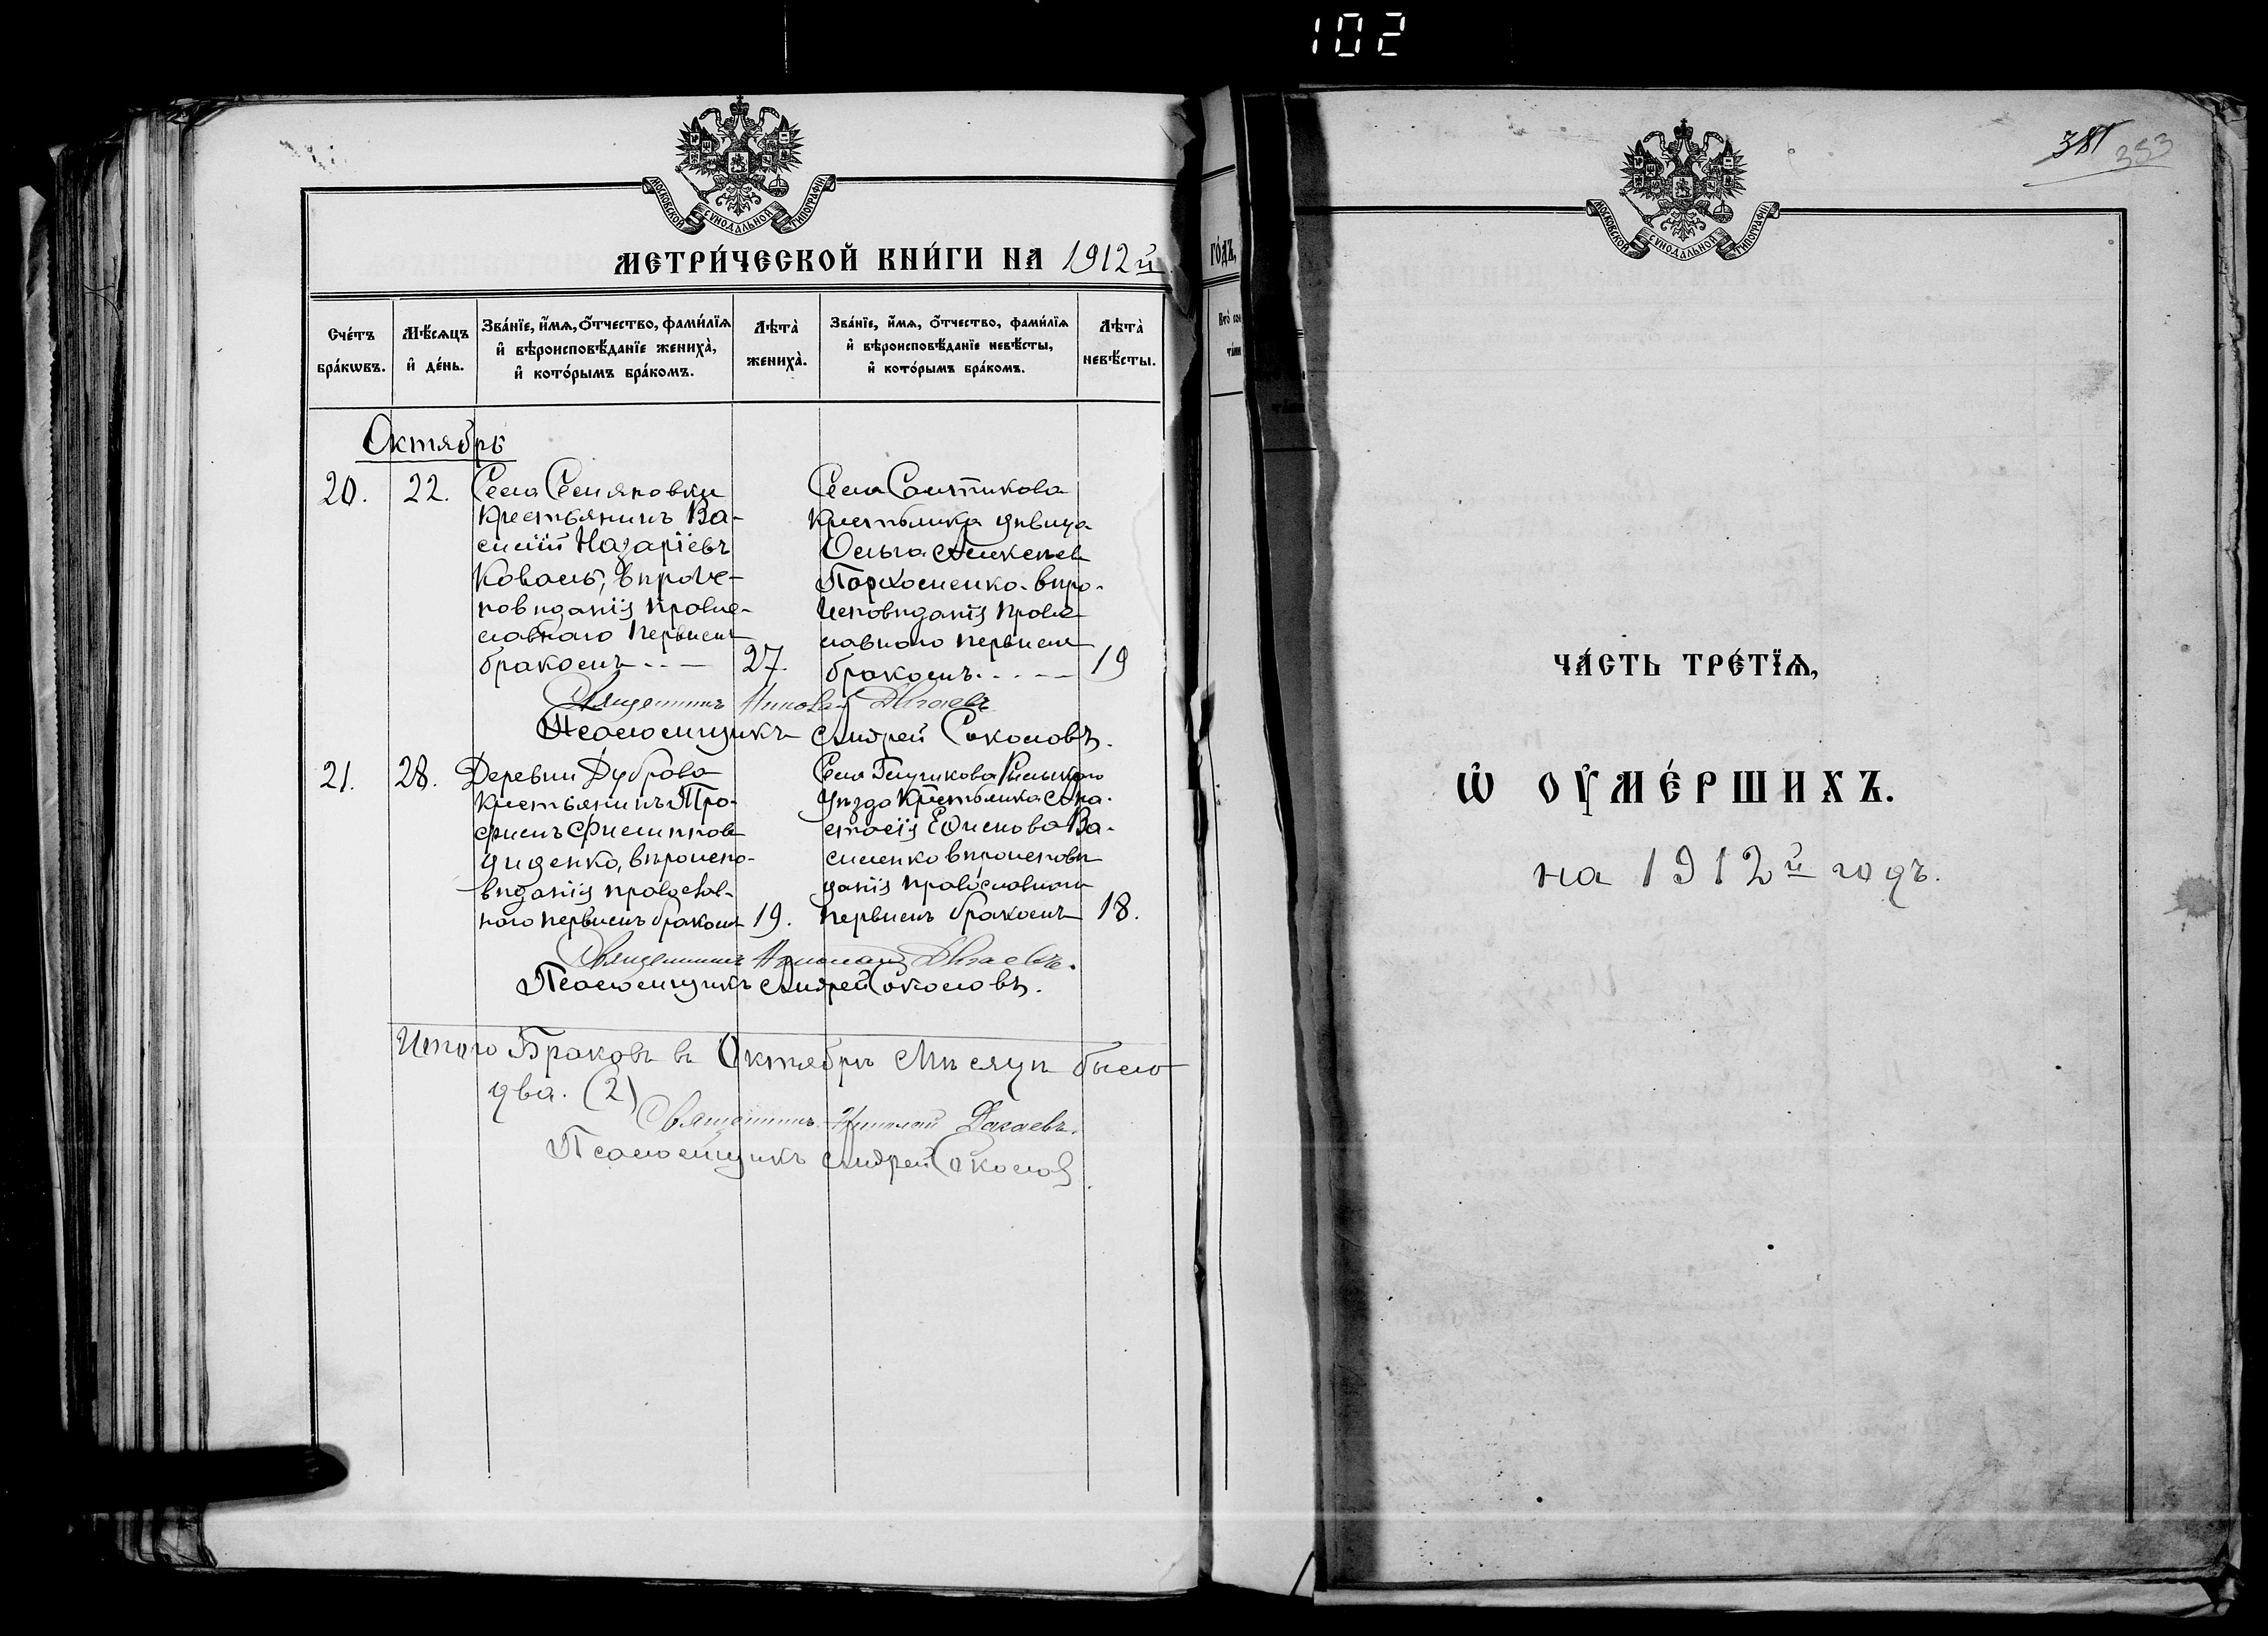 102
МОСКОВСКОЙ СУНОДАЛЬНОЙ ТИПОГРАФІИ
МЕТРИ́ЧЕСКОЙ КНИ́ГИ НА 1912й
Сче́тъ бра́кѡвъ.
Мѣ́сяцъ и҆ де́нь.
Зва́нїе, и҆́мѧ, ѻ҆́тчество, фами́лїѧ
и҆ вѣроисповѣ́данїе жениха̀,
и҆ кото́рымъ бра́комъ.
Лѣта̀ жениха̀.
Зва́нїе, и҆́мѧ, ѻ҆́тчество, фами́лїѧ
и҆ вѣроисповѣ́данїе невѣ́сты,
и҆ кото́рымъ бра́комъ.
Лѣта̀ невѣ́сты.
Октябрь
20. 22.
Села Семяновки
Крестьянинъ Ва-
силій Назаріевъ
Коваль, вѣроис-
повѣданія право-
славнаго первымъ
бракомъ 27.
Села
Крестьянка дѣвица
Ольга Алексѣев
Пархоменко вѣро-
исповѣданія право
славнаго первымъ
бракомъ 19
Священникъ Николай
Псаломщикъ Андрей Соколовъ.
21. 28.
Деревни Дуброва
Крестьянинъ Тро-
фимъ Филиппов
Диденко, вѣроиспо-
вѣданія православ-
наго первымъ бракомъ 19.
Села Рыльскаго
Уѣзда Крестьянка Ана-
стасія Ва-
силенко вѣроисповѣ
данія православнаго
первымъ бракомъ 18.
Священникъ Николай
Псаломщикъ Андрей Соколовъ.
Итого Браковъ въ Октябрѣ Мѣсяцѣ было
два. (2)
Священникъ Николай
Псаломщикъ Андрей Соколов
ГО́ДЪ,
381
МОСКОВСКОЙ СУНОДАЛЬНОЙ ТИПОГРАФІИ
ЧА́СТЬ ТРЕ́ТЇѦ,
Ѡ҆ ОУ҆МЕ́РШИХЪ.
на 1912й годъ.